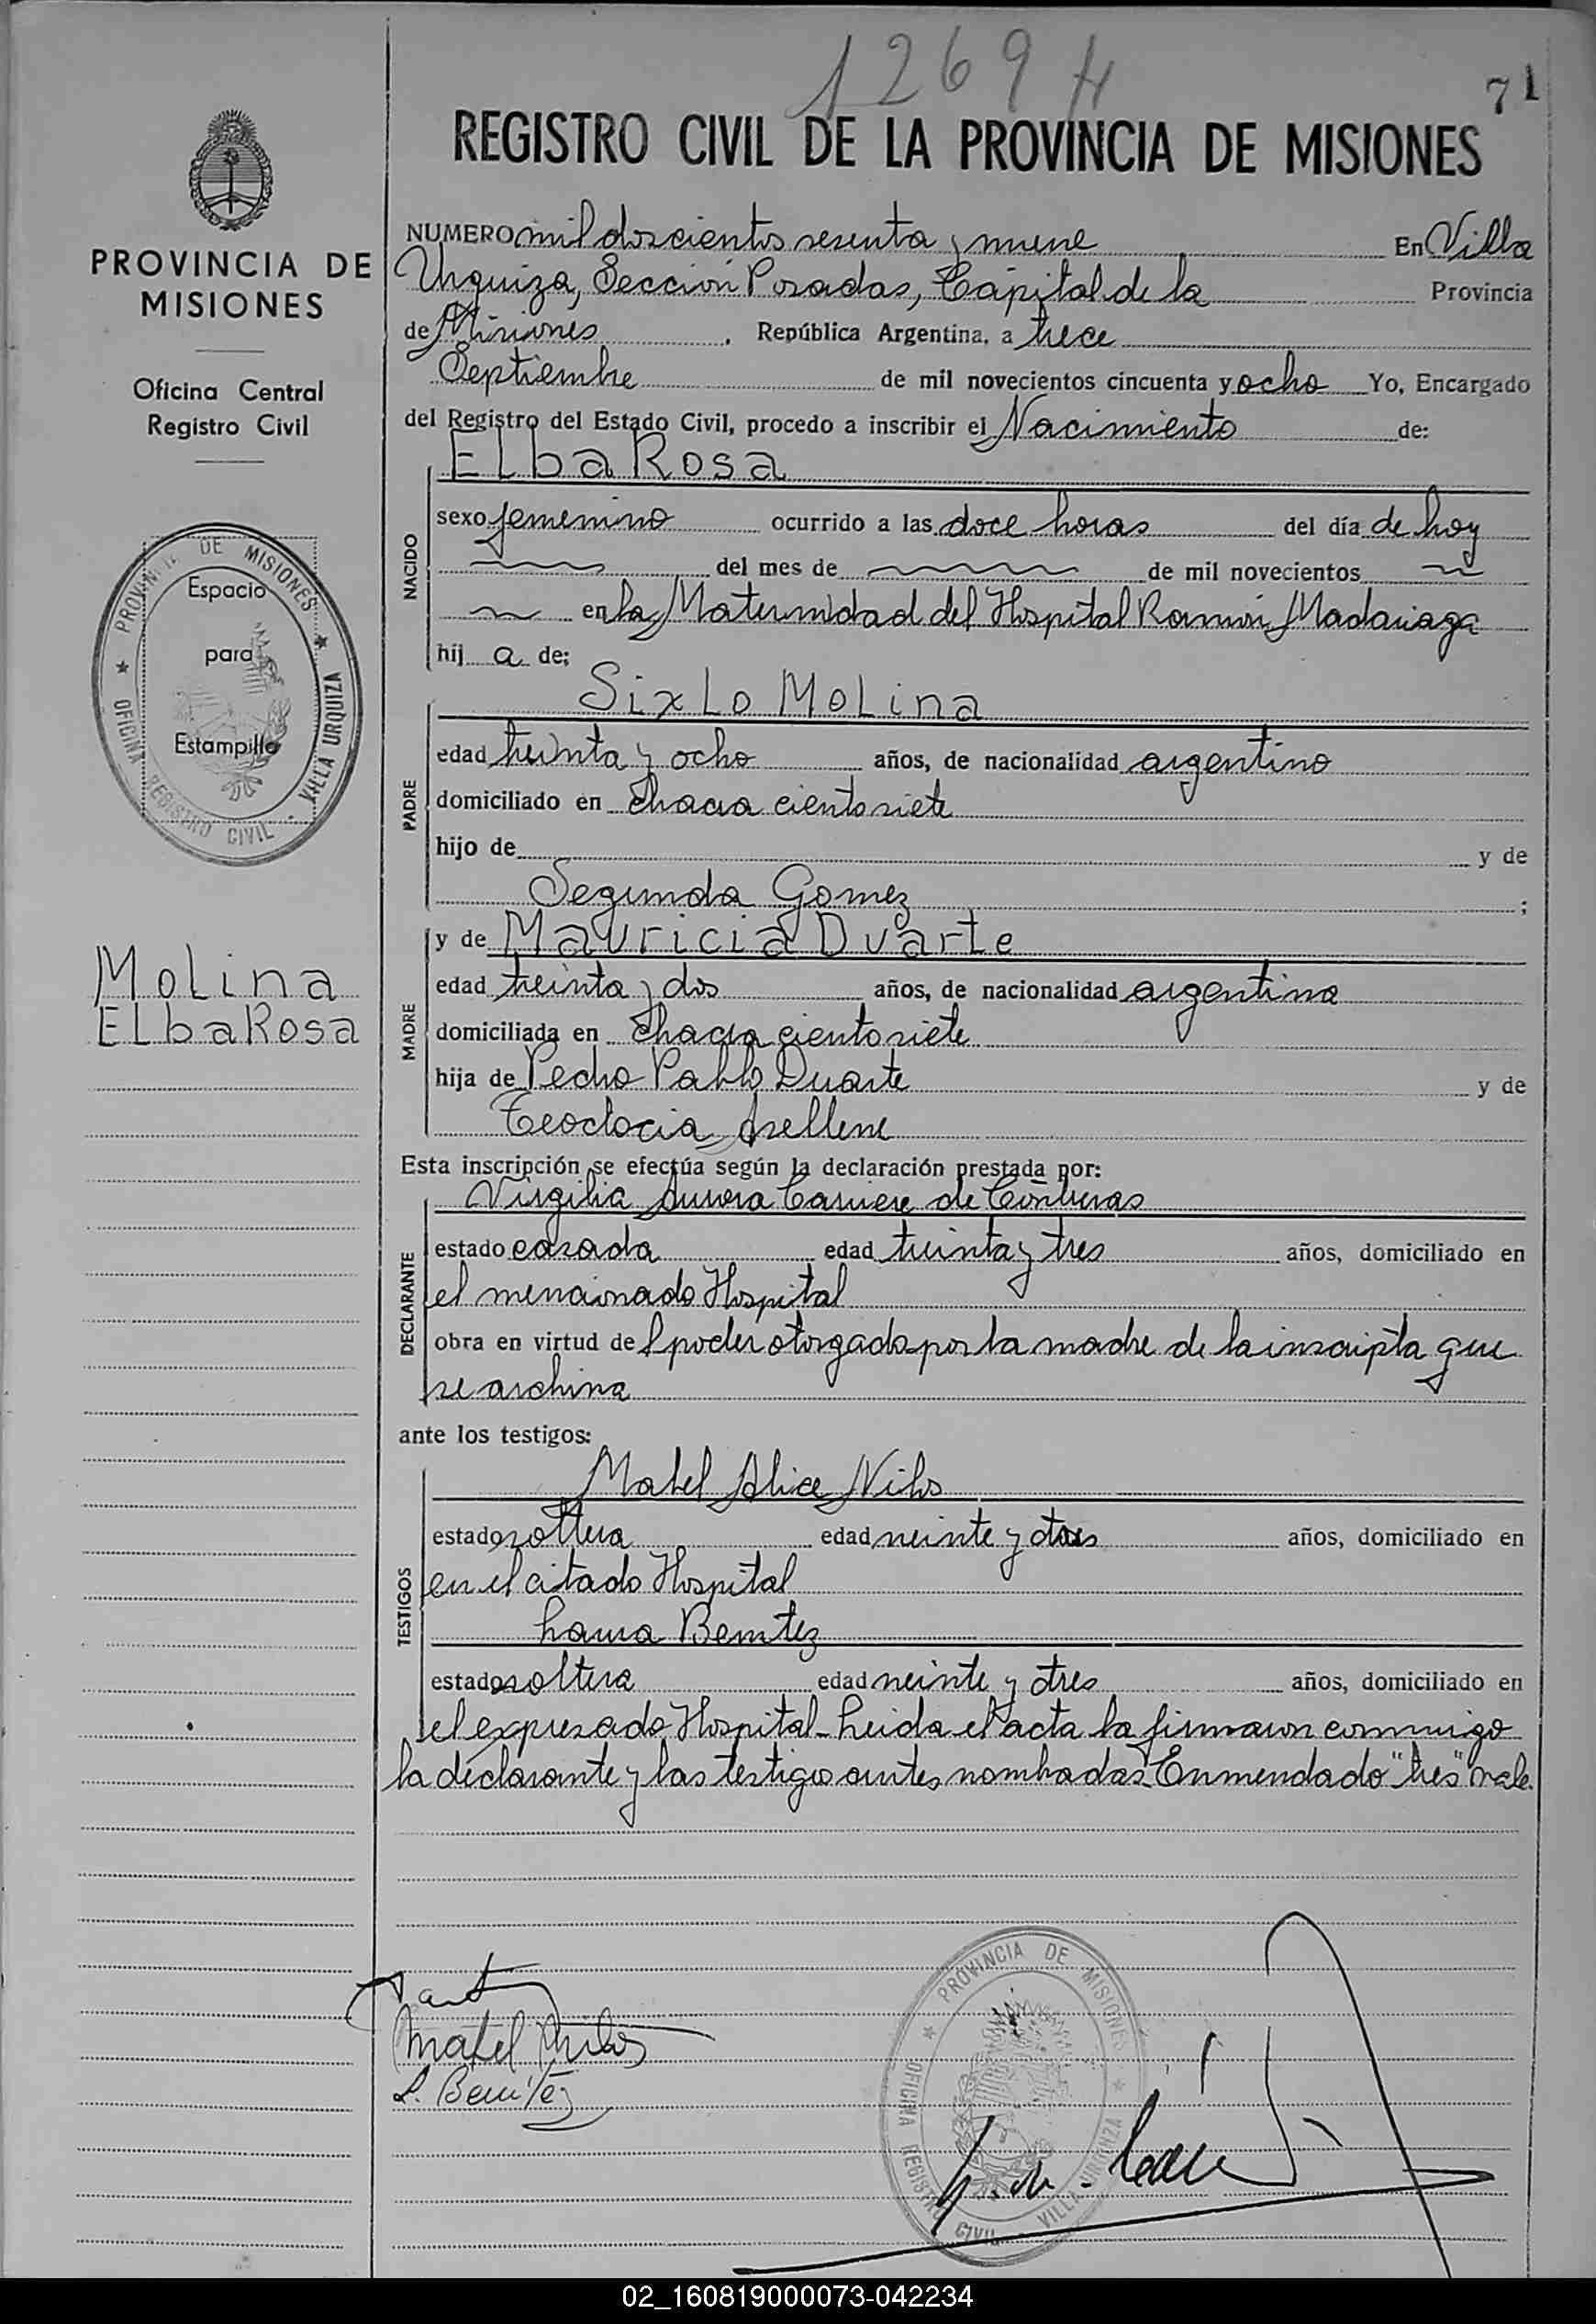 1269 H
71
REGISTRO CIVIL DE LA PROVINCIA DE MISIONES
PROVINCIA DE
MISIONES
Oficina Central
Registro Civil
PROVINCIA DE MISIONES ★ VILLA URQUIZA · OFICINA REGISTRO CIVIL ★
Espacio
para
Estampilla
Molina
Elba Rosa
NUMERO mil doscientos sesenta y nueve En Villa
Urquiza, Sección Posadas, Capital de la Provincia
de Misiones, República Argentina, a trece
Septiembre de mil novecientos cincuenta y ocho Yo, Encargado
del Registro del Estado Civil, procedo a inscribir el Nacimiento de:
NACIDO
Elba Rosa
sexo femenino ocurrido a las doce horas del día de hoy
del mes de de mil novecientos
en la Maternidad del Hospital Ramón Madariaga
hij a de:
PADRE
Sixto Molina
edad treinta y ocho años, de nacionalidad argentino
domiciliado en Chacra ciento siete
hijo de y de
Segunda Gomez ;
MADRE
y de Mauricia Duarte
edad treinta y dos años, de nacionalidad argentina
domiciliada en Chacra ciento siete
hija de Pedro Pablo Duarte y de
Esta inscripción se efectúa según la declaración prestada por:
DECLARANTE
Virgilia Aurora de Contreras
estado casada edad treinta y tres años, domiciliado en
el mencionado Hospital
obra en virtud del poder otorgado por la madre de la inscripta que
se archiva
ante los testigos:
TESTIGOS
Mabel Alice Nilos
estado soltera edad veinte y tres años, domiciliado en
en el citado Hospital
Laura Benitez
estado soltera edad veinte y tres años, domiciliado en
el expresado Hospital - Leida el acta la firmaron conmigo
la declarante y las testigos antes nombradas. Enmendado "tres" vale.
Mabel Nilos
L. Benítez
PROVINCIA DE MISIONES ★ VILLA URQUIZA OFICINA REGISTRO CIVIL ★
02_160819000073-042234